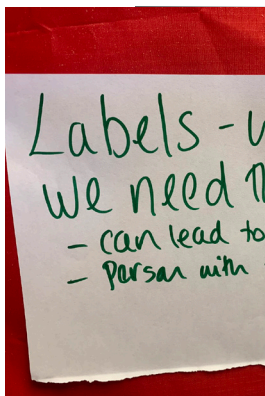 Labels -
we need
- can lead to
- Person with